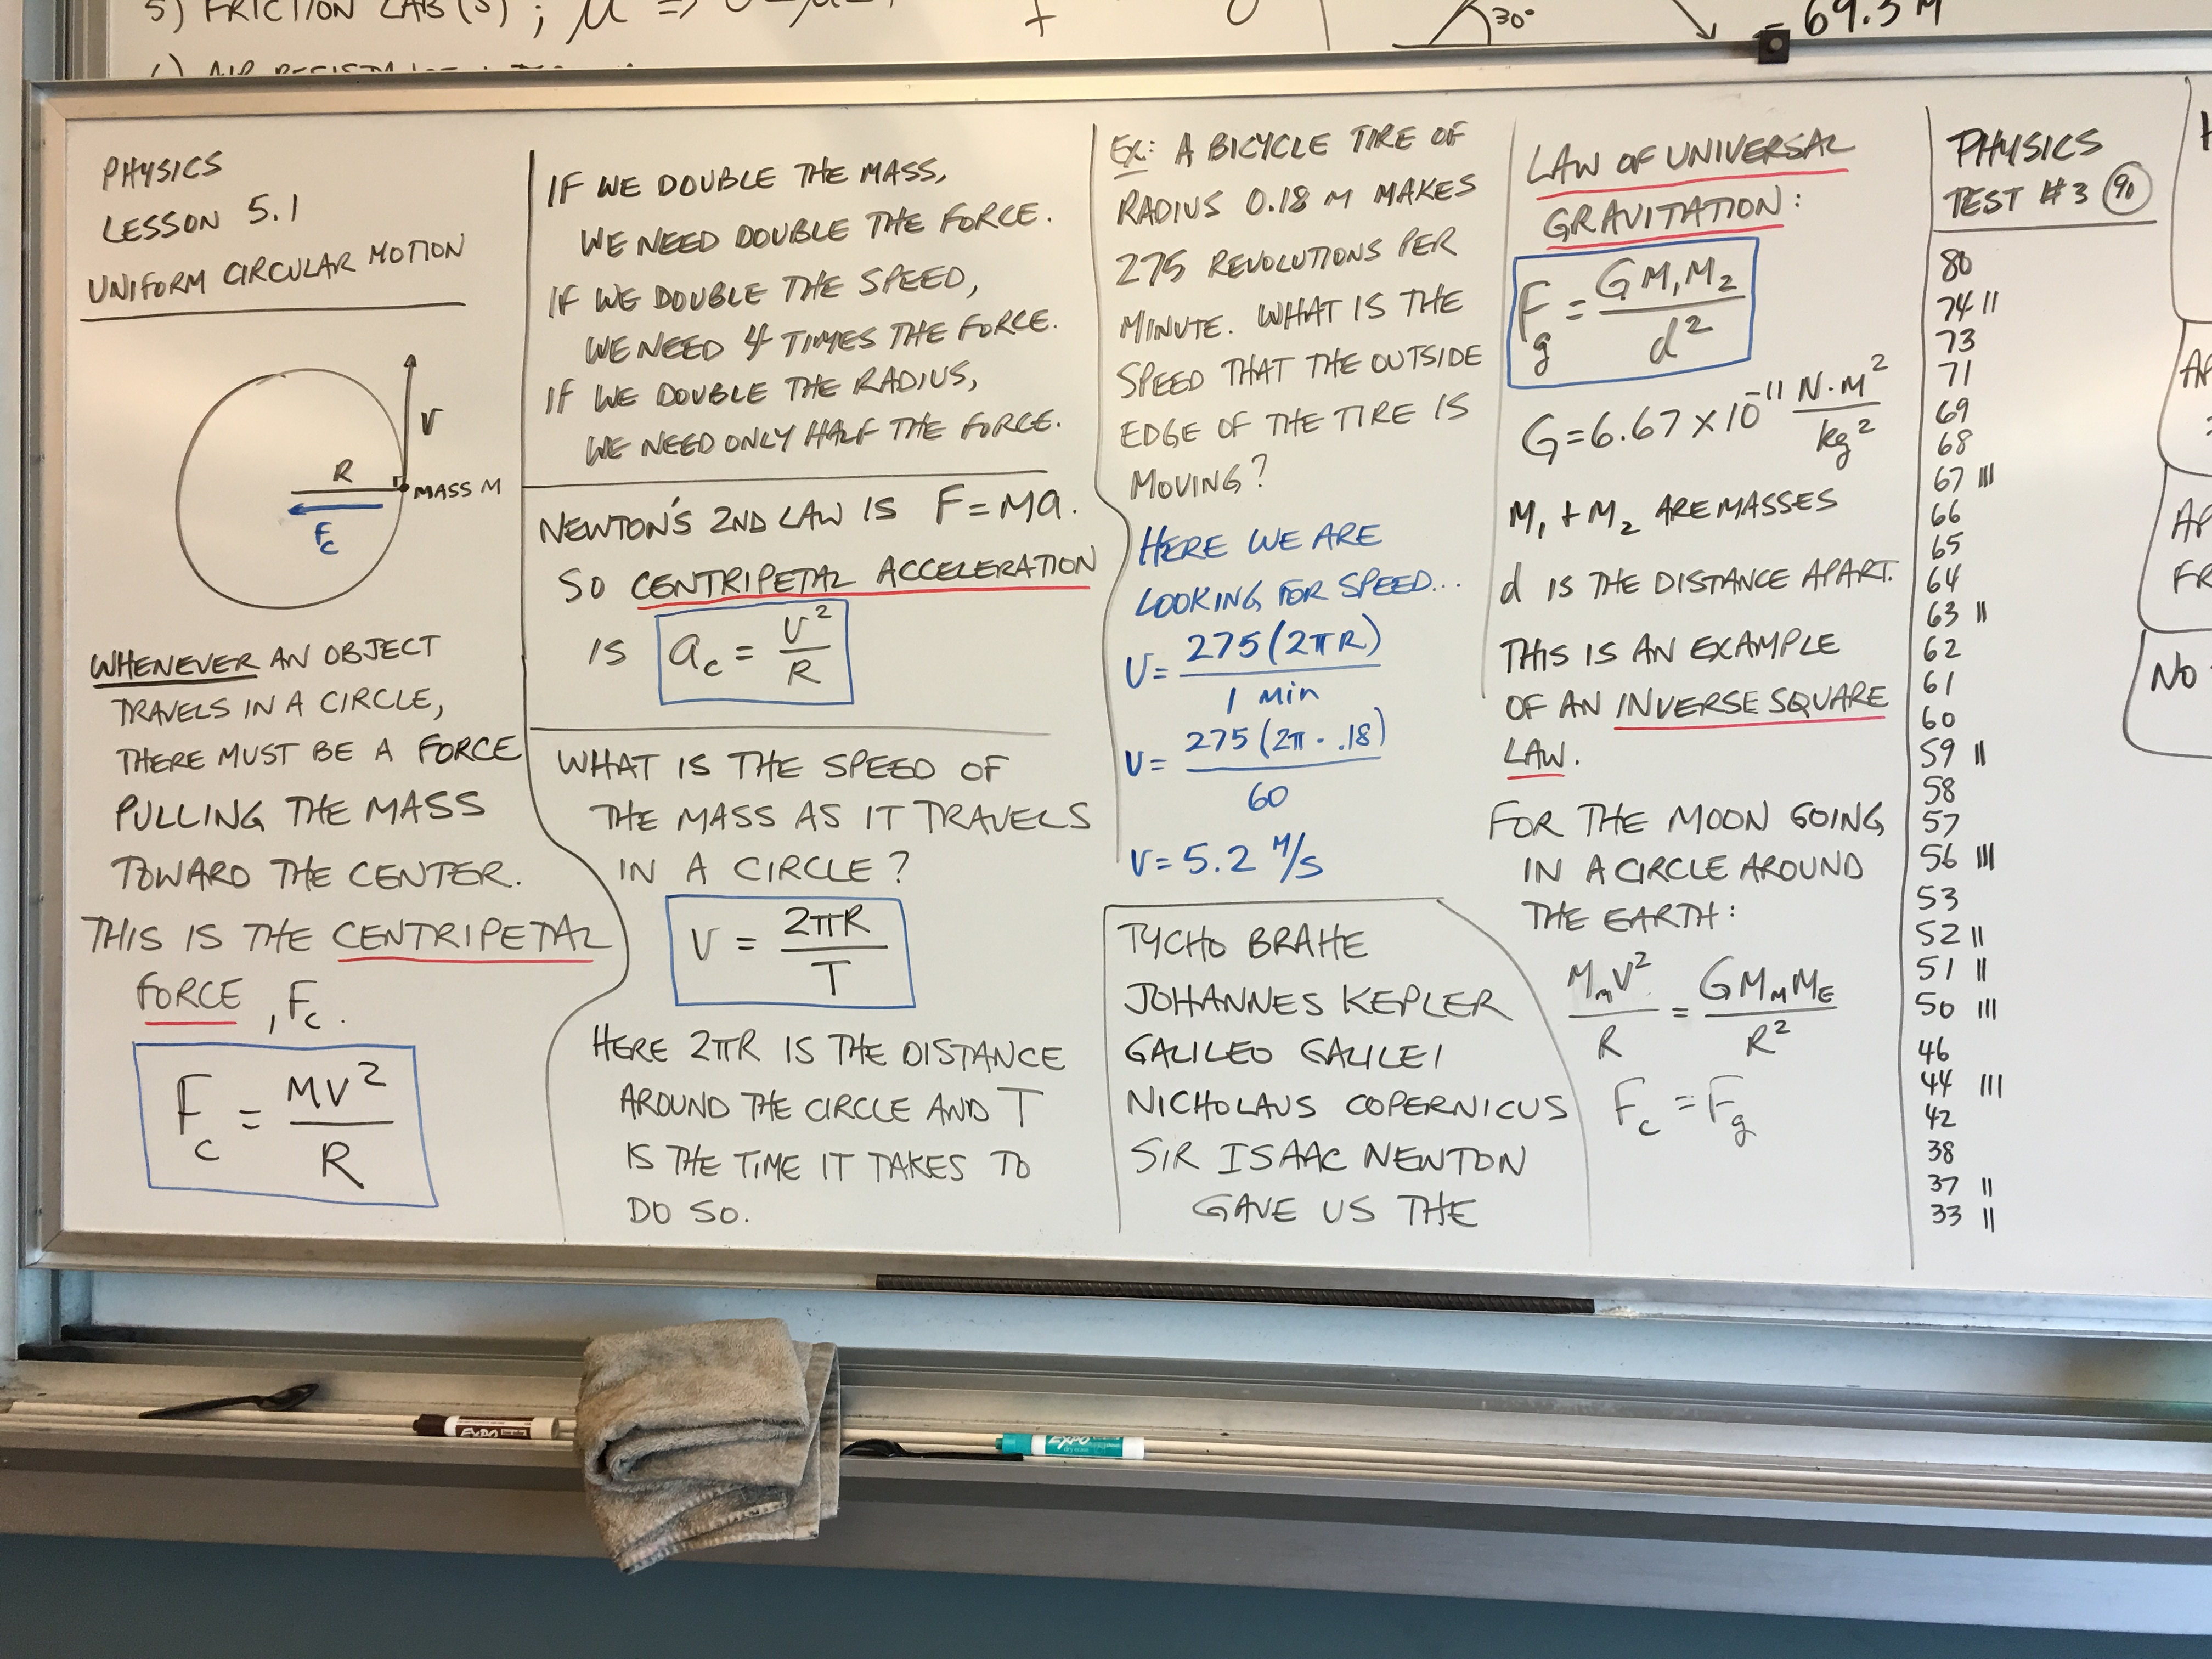 5) FRICTION LAB(S) ; μ =>
+
30°
= 69.3 M
PHYSICS
LESSON 5.1
UNIFORM CIRCULAR MOTION
V
R
MASS M
Fc
WHENEVER AN OBJECT
TRAVELS IN A CIRCLE,
THERE MUST BE A FORCE
PULLING THE MASS
TOWARD THE CENTER.
THIS IS THE CENTRIPETAL
FORCE, Fc.
Fc = MV²/R
IF WE DOUBLE THE MASS,
WE NEED DOUBLE THE FORCE.
IF WE DOUBLE THE SPEED,
WE NEED 4 TIMES THE FORCE.
IF WE DOUBLE THE RADIUS,
WE NEED ONLY HALF THE FORCE.
NEWTON'S 2ND LAW IS F=Ma.
SO CENTRIPETAL ACCELERATION
IS ac = V²/R
WHAT IS THE SPEED OF
THE MASS AS IT TRAVELS
IN A CIRCLE?
V = 2πR/T
HERE 2πR IS THE DISTANCE
AROUND THE CIRCLE AND T
IS THE TIME IT TAKES TO
DO SO.
EX: A BICYCLE TIRE OF
RADIUS 0.18 M MAKES
275 REVOLUTIONS PER
MINUTE. WHAT IS THE
SPEED THAT THE OUTSIDE
EDGE OF THE TIRE IS
MOVING?
HERE WE ARE
LOOKING FOR SPEED...
V = 275(2πR)/1 min
V = 275(2π · .18)/60
V = 5.2 M/S
TYCHO BRAHE
JOHANNES KEPLER
GALILEO GALILEI
NICHOLAUS COPERNICUS
SIR ISAAC NEWTON
GAVE US THE
LAW OF UNIVERSAL
GRAVITATION:
Fg = GM₁M₂/d²
G = 6.67 x 10⁻¹¹ N·M²/kg²
M₁ + M₂ ARE MASSES
d IS THE DISTANCE APART.
THIS IS AN EXAMPLE
OF AN INVERSE SQUARE
LAW.
FOR THE MOON GOING
IN A CIRCLE AROUND
THE EARTH:
MmV²/R = GMmME/R²
Fc = Fg
PHYSICS
TEST #3 90
80
74 II
73
71
69
68
67 III
66
65
64
63 II
62
61
60
59 II
58
57
56 III
53
52 II
51 II
50 III
46
44 III
42
38
37 II
33 II
NO
EXPO
EXPO
dry erase